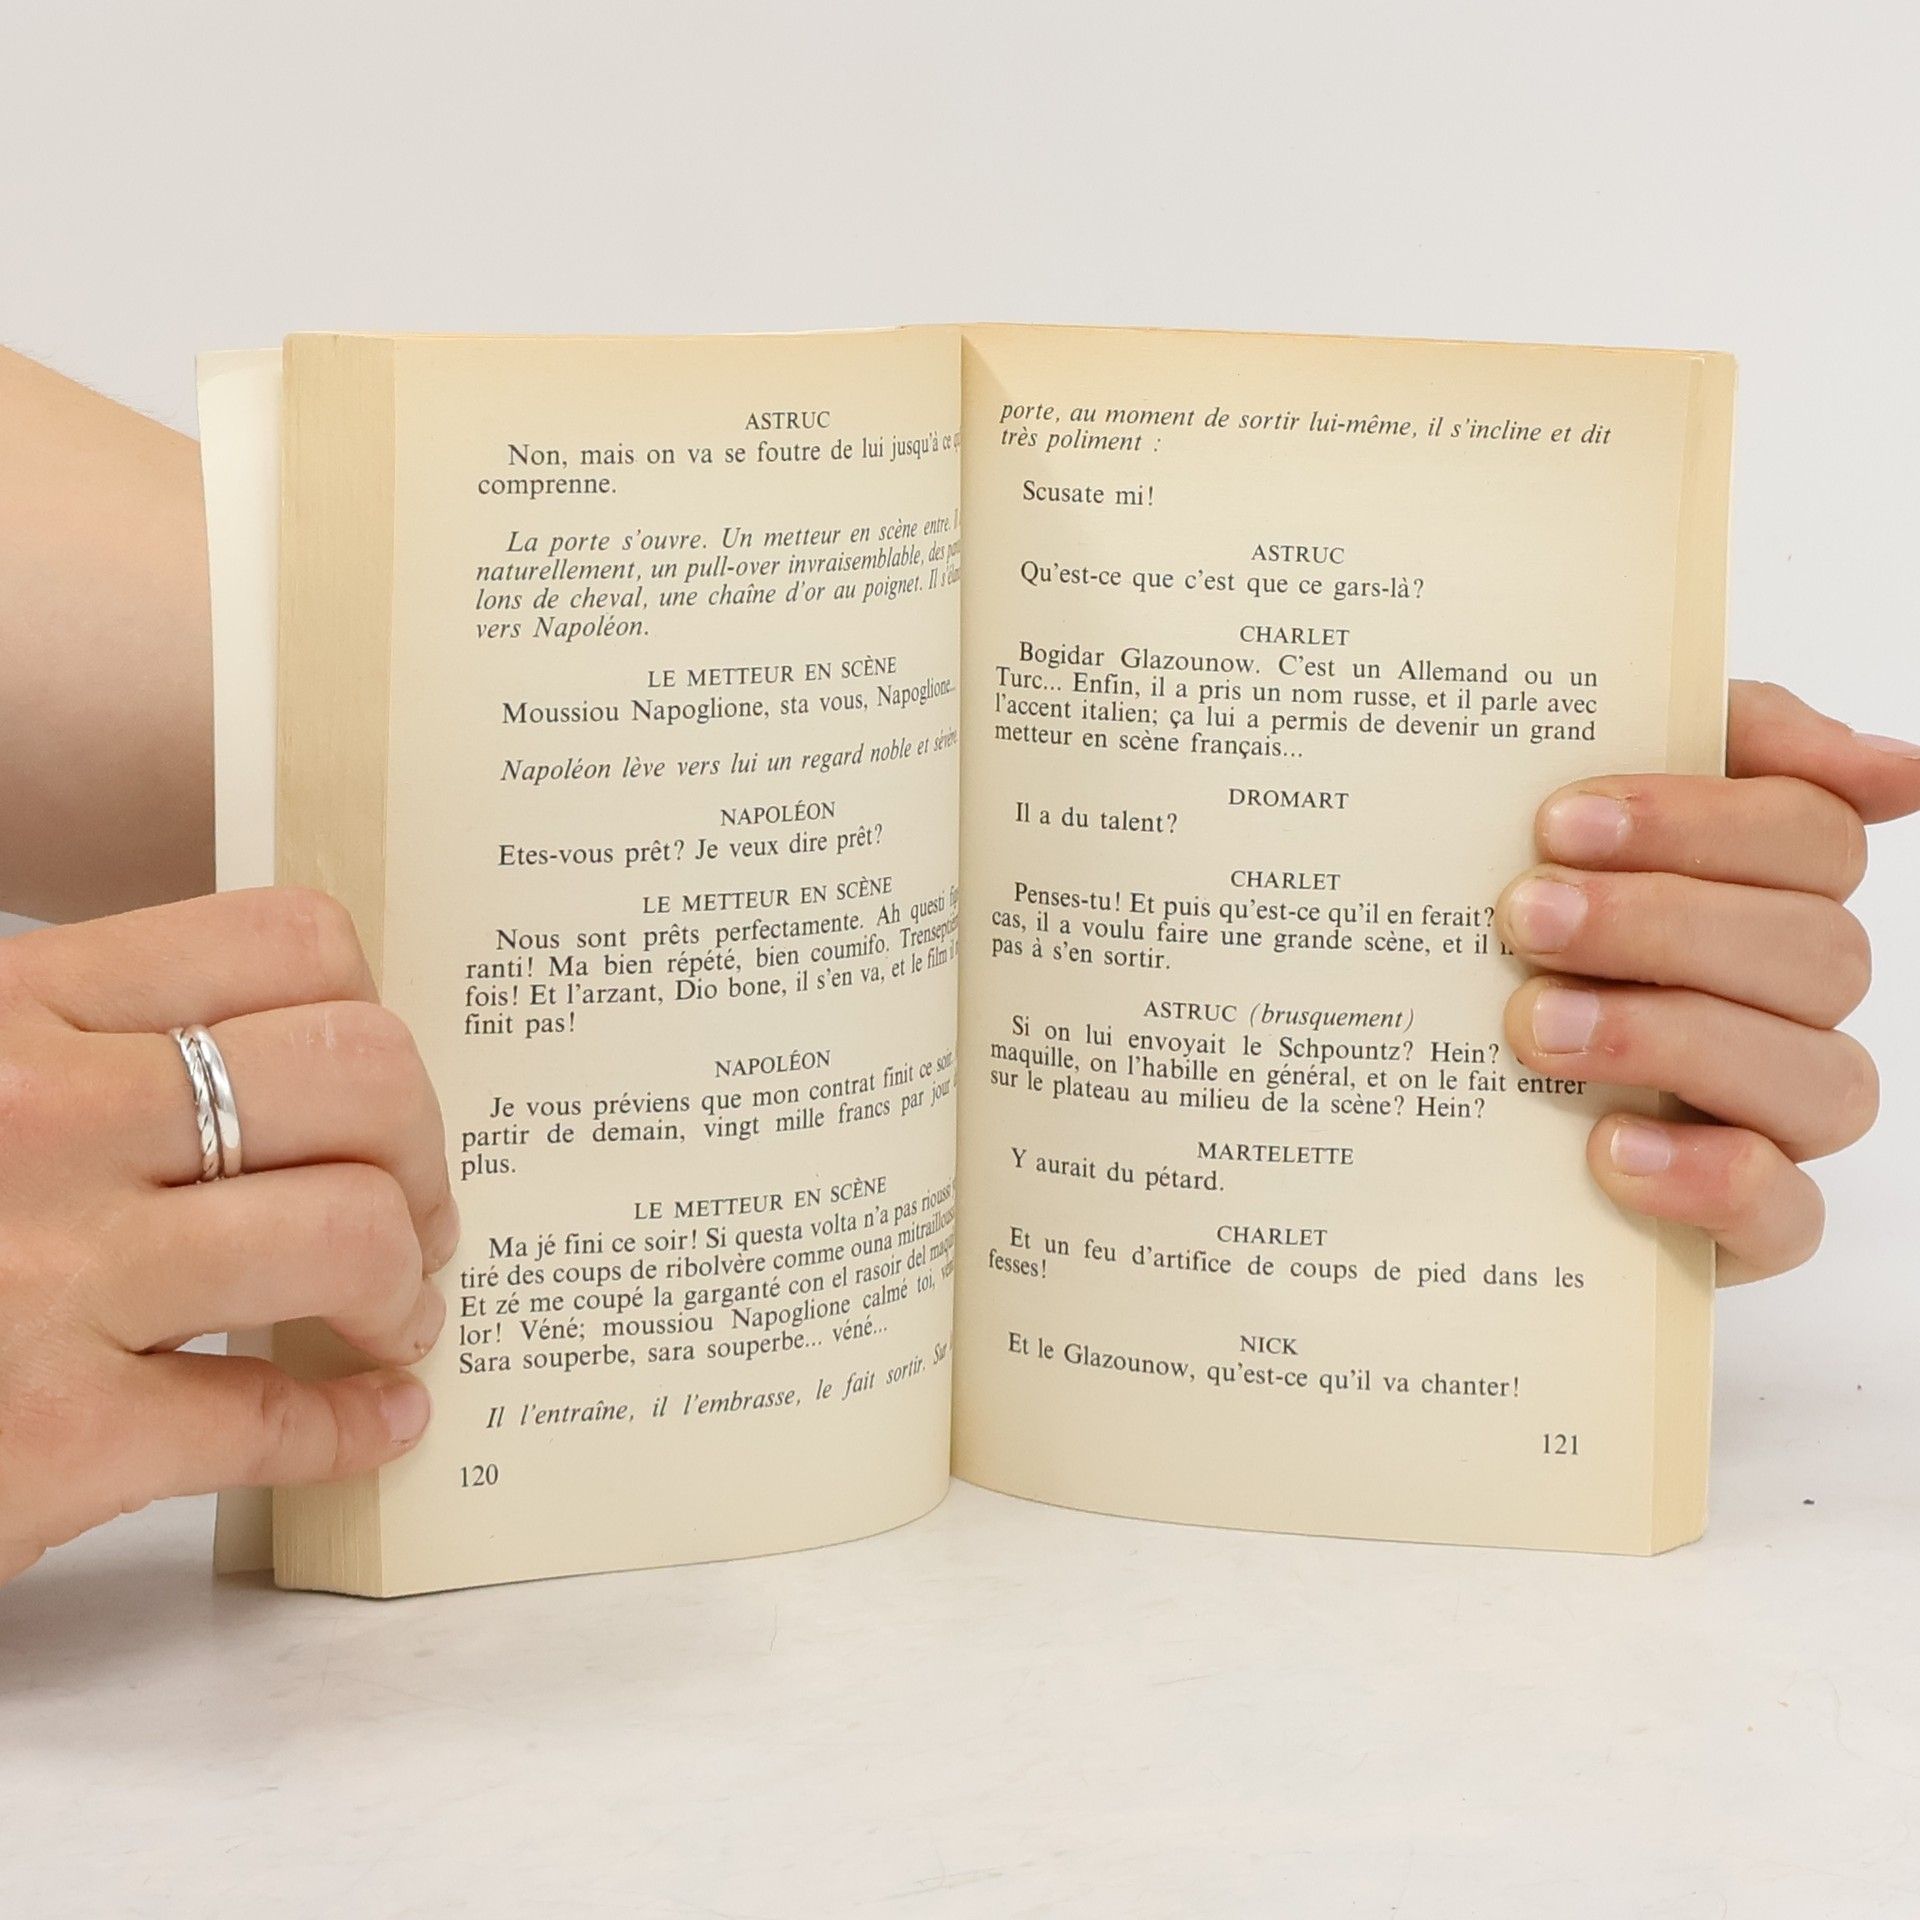 ASTRUC
Non, mais on va se foutre de lui jusqu'à ce
comprenne.
La porte s'ouvre. Un metteur en scène entre.
naturellement, un pull-over invraisemblable, des
lons de cheval, une chaîne d'or au poignet. Il
vers Napoléon.
LE METTEUR EN SCÈNE
Moussiou Napoglione, sta vous, Napoglione...
Napoléon lève vers lui un regard noble et sévère.
NAPOLÉON
Etes-vous prêt? Je veux dire prêt?
LE METTEUR EN SCÈNE
Nous sont prêts perfectamente. Ah questi
ranti! Ma bien répété, bien coumifo.
fois! Et l'arzant, Dio bone, il s'en va, et le film il
finit pas!
NAPOLÉON
Je vous préviens que mon contrat finit ce soir.
partir de demain, vingt mille francs par jour
plus.
LE METTEUR EN SCÈNE
Ma jé fini ce soir! Si questa volta n'a pas rioussi
tiré des coups de ribolvère comme ouna
Et zé me coupé la garganté con el rasoir del
lor! Véné; moussiou Napoglione calmé toi,
Sara souperbe, sara souperbe... véné...
Il l'entraîne, il l'embrasse, le fait sortir. Sur
120
porte, au moment de sortir lui-même, il s'incline et dit
très poliment :
Scusate mi!
ASTRUC
Qu'est-ce que c'est que ce gars-là?
CHARLET
Bogidar Glazounow. C'est un Allemand ou un
Turc... Enfin, il a pris un nom russe, et il parle avec
l'accent italien; ça lui a permis de devenir un grand
metteur en scène français...
DROMART
Il a du talent?
CHARLET
Penses-tu! Et puis qu'est-ce qu'il en ferait?
cas, il a voulu faire une grande scène, et il
pas à s'en sortir.
ASTRUC (brusquement)
Si on lui envoyait le Schpountz? Hein?
maquille, on l'habille en général, et on le fait entrer
sur le plateau au milieu de la scène? Hein?
MARTELETTE
Y aurait du pétard.
CHARLET
Et un feu d'artifice de coups de pied dans les
fesses!
NICK
Et le Glazounow, qu'est-ce qu'il va chanter!
121